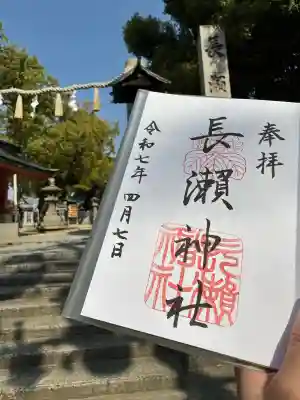 奉拝
長瀬神社
令和七年四月七日
長瀬